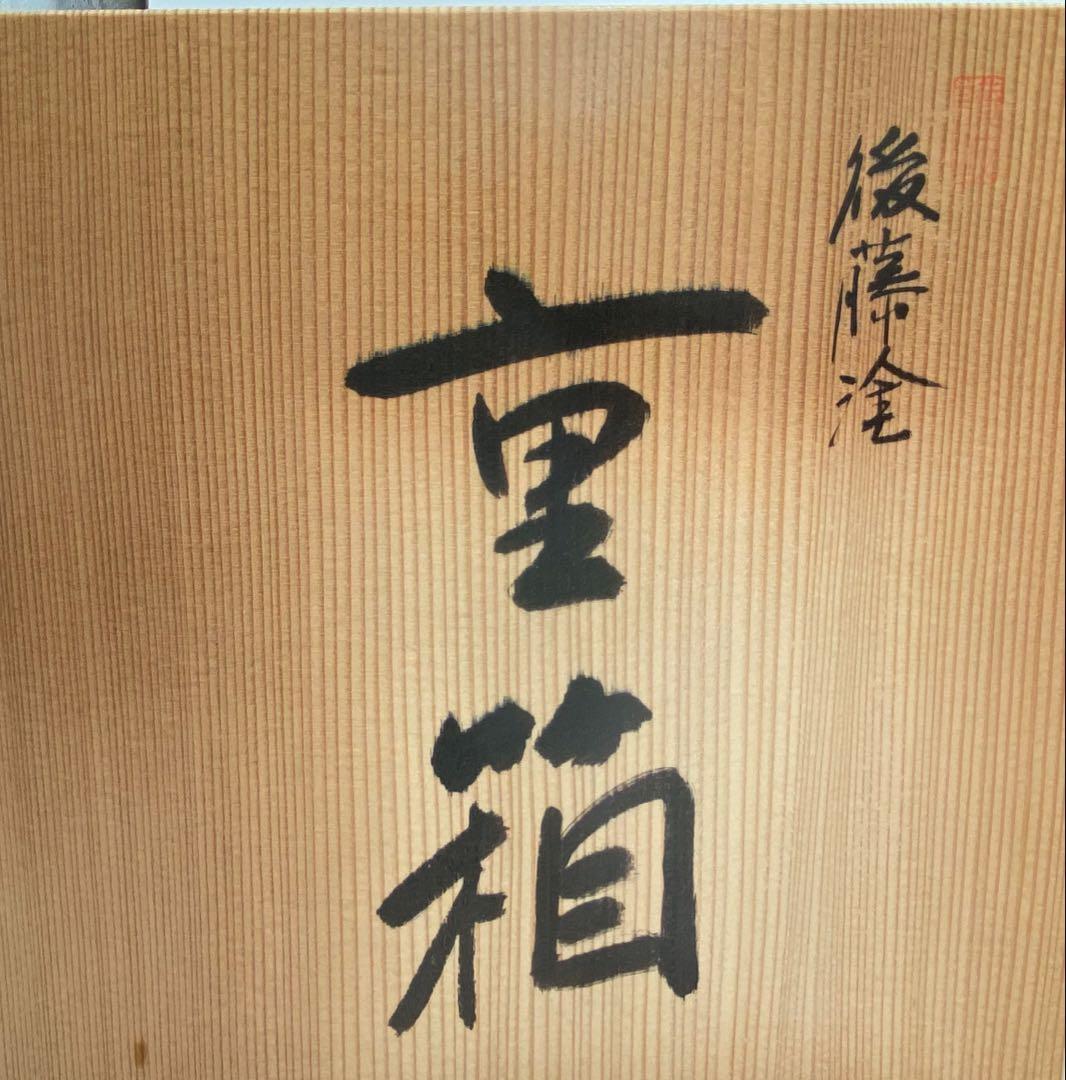 後藤塗
重箱